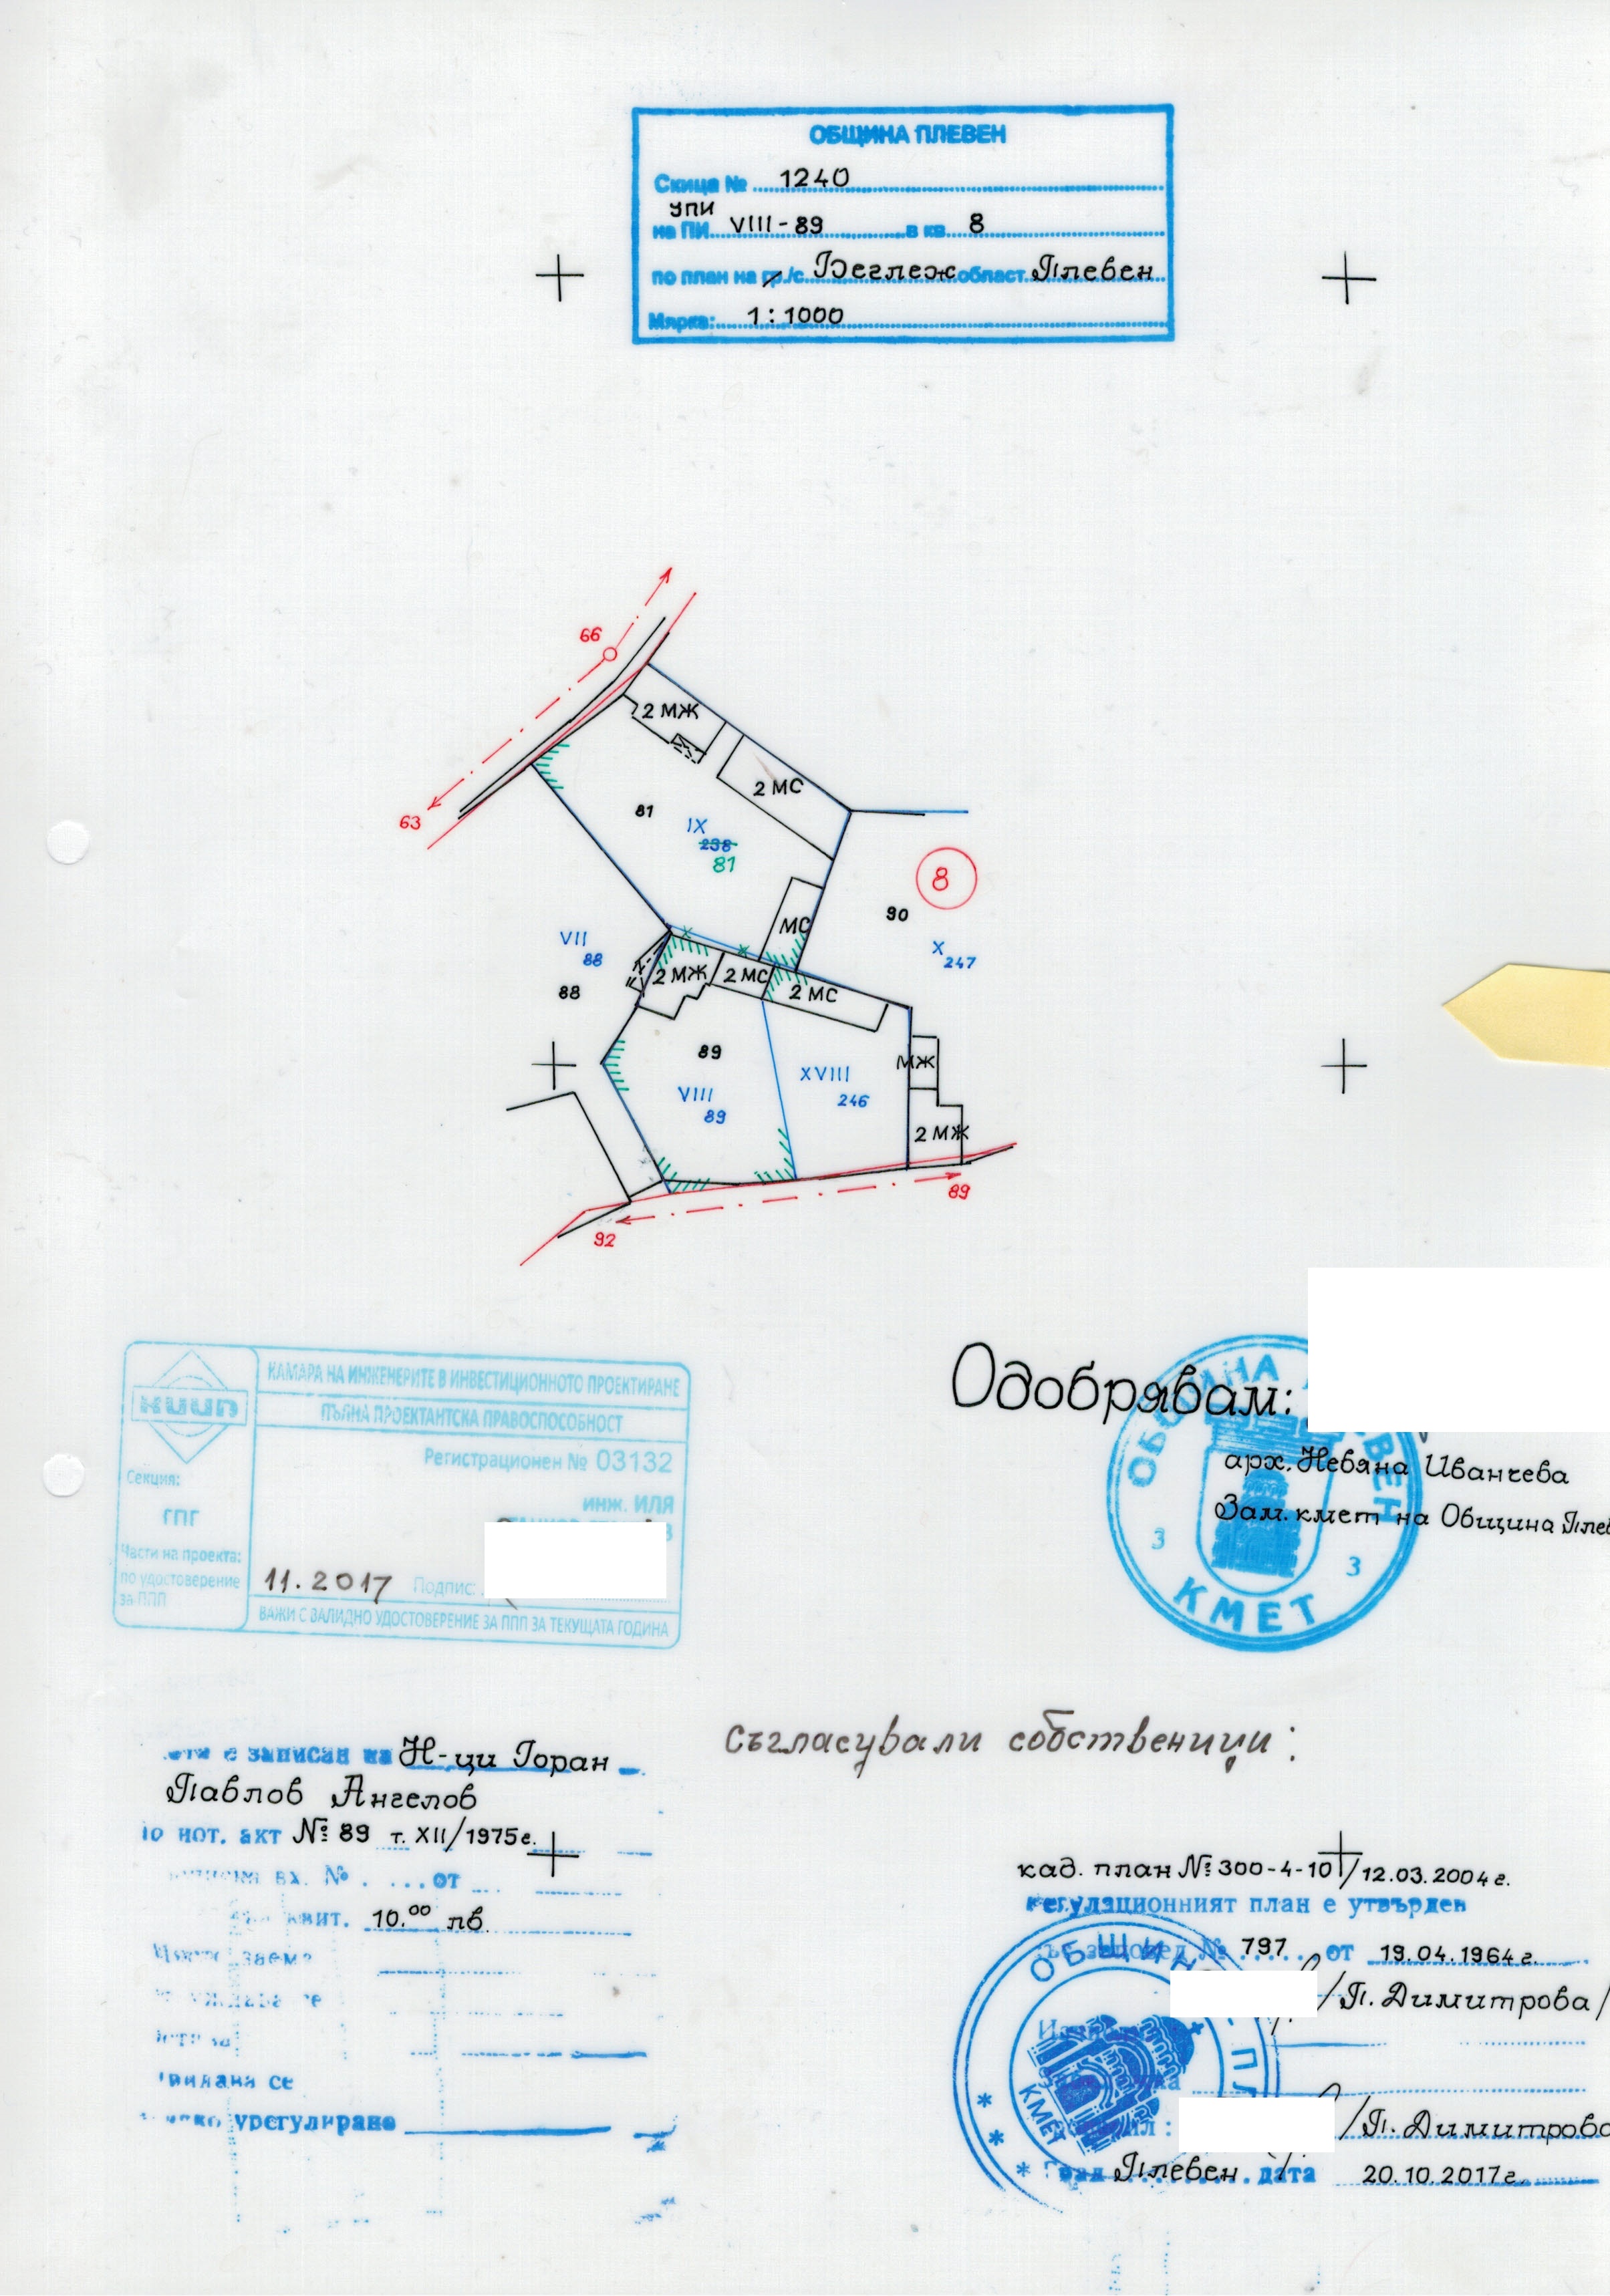 ОБЩИНА ПЛЕВЕН
Скица № 1240
УПИ
на ПИ VIII-89 в кв 8
по план на гр./с. Беглеж област Плевен
Мярка: 1:1000
66
2 МЖ
2 МС
63
81
IX
238
81
8
90
МС
VII
88
X
247
2 МЖ
2 МС
2 МС
88
89
МЖ
XVIII
246
VIII
89
2 МЖ
89
92
КАМАРА НА ИНЖЕНЕРИТЕ В ИНВЕСТИЦИОННОТО ПРОЕКТИРАНЕ
КИИП
ПЪЛНА ПРОЕКТАНТСКА ПРАВОСПОСОБНОСТ
Регистрационен № 03132
Секция:
ГПГ
инж. ИЛЯ
Части на проекта:
по удостоверение
за ППП
11.2017 Подпис:
ВАЖИ С ВАЛИДНО УДОСТОВЕРЕНИЕ ЗА ППП ЗА ТЕКУЩАТА ГОДИНА
Одобрявам:
арх. Невяна Иванчева
Зам. кмет на Община Плев
ОБЩИНА
3 3
КМЕТ
Съгласували собственици:
е записан на Н-ци Горан
Павлов Ангелов
нот. акт № 89 т. XII/1975г.
вх. № от
квит. 10.00 лв.
заема
се
урегулиране
кад. план № 300-4-10/12.03.2004г.
Регулационният план е утвърден
заповед № 797 от 19.04.1964г.
/П. Димитрова/
/П. Димитрова
Град Плевен дата 20.10.2017г.
ОБЩИНА ПЛ
КМЕТ